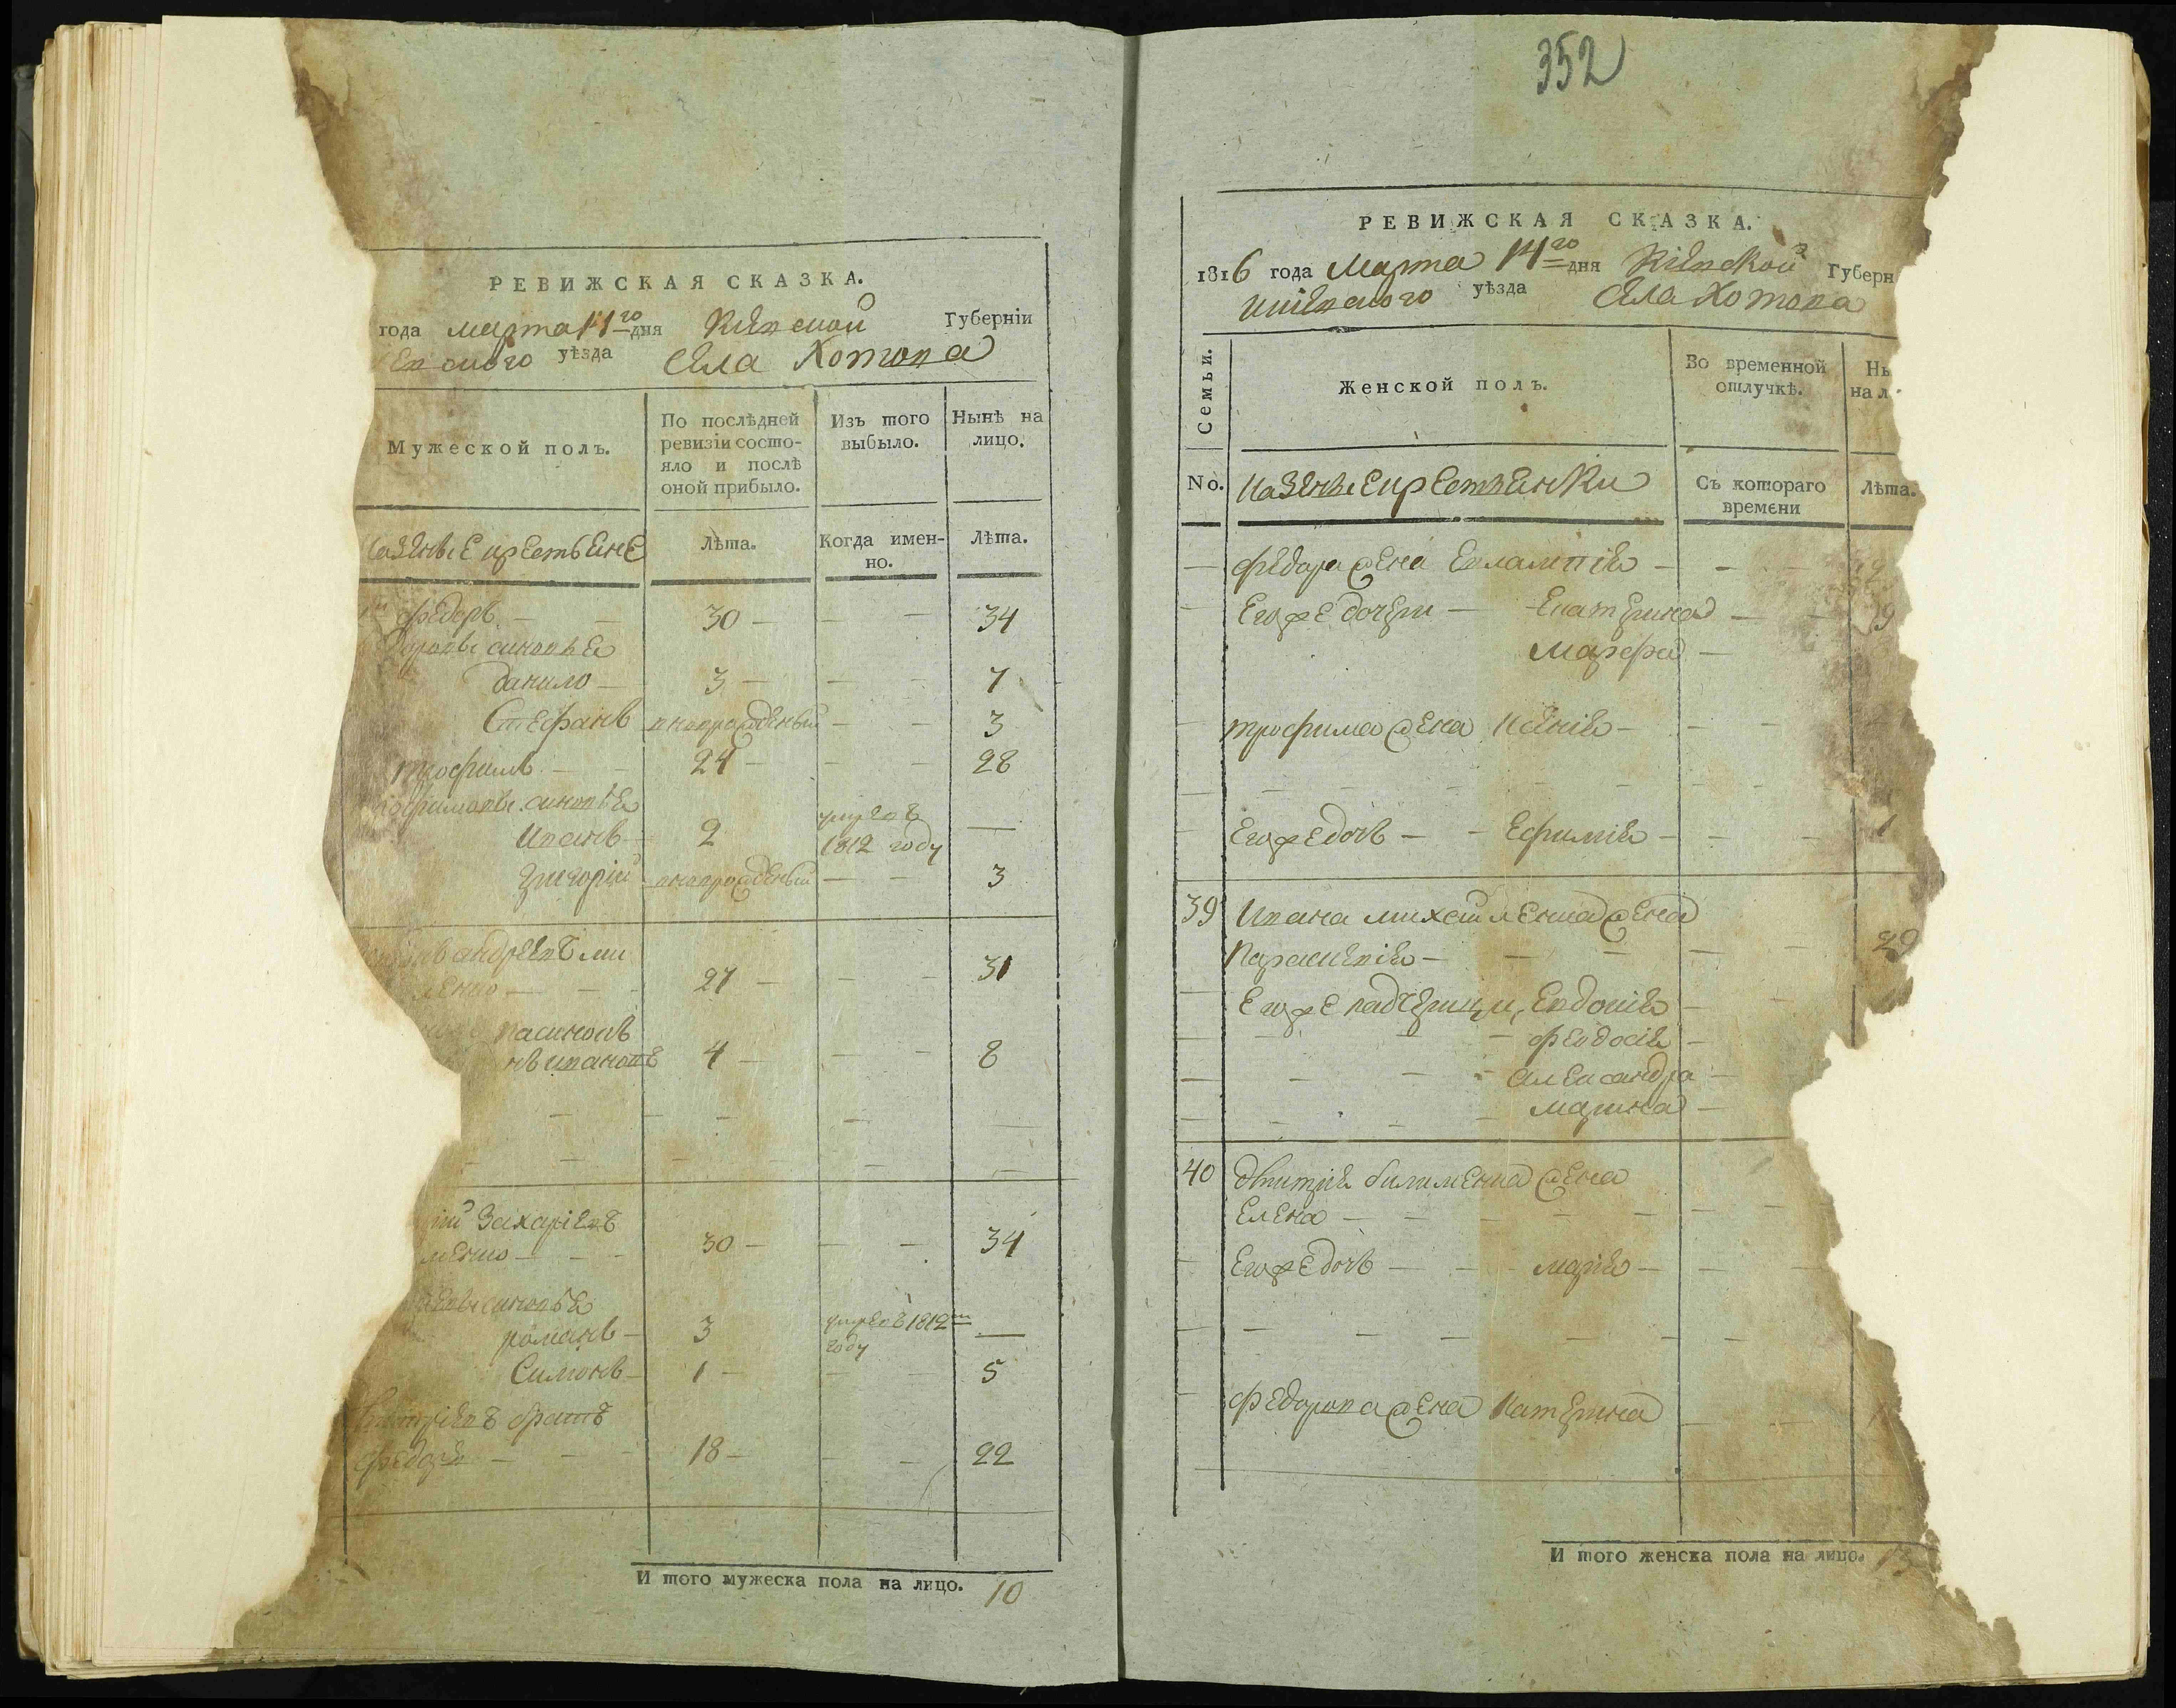 РЕВИЖСКАЯ СКАЗКА.
года марта 14го дня Кіевской Губерніи
уѣзда села Хотова
Мужеской полъ.
По послѣдней
ревизіи состо-
яло и послѣ
оной прибыло.
Изъ того
выбыло.
Нынѣ на
лицо.
казеные крестьяне
Лѣта.
Когда имен-
но.
Лѣта.
федоръ — 30 — 34
синовья
данило — 3 — 7
Стефанъ новорожденый — 3
трофимъ — 24 — 28
синовья
Иванъ — 2 умре въ 1812 году —
григорій новорожденый — 3
андреевъ ми
27 — 31
пасинокъ
4 — 8
Захаріевъ
менко — 30 — 34
синовья
романъ — 3 умре въ 1812м году —
Симонъ — 1 — 5
братъ
федоръ — 18 — 22
И того мужеска пола на лицо. 10
352
РЕВИЖСКАЯ СКАЗКА.
1816 года Марта 14го дня Кіевской Губерн
кіевского уѣзда села Хотова
Семьи.
Женской полъ.
Во временной
отлучкѣ.
Нь
на л
No.
казеные крестьянки
Съ котораго
времени
Лѣта.
федора жена Евлампія —
Егоже дочери — Екатерина — 9
Марфа —
трофима жена Ксенія —
Егоже дочь — Ефимія — 1
39 Ивана михайленка жена
Параскевія — 29
Егоже падчерици, Евдокія —
феодосія —
александра —
марина —
40 дмитрія билименка жена
Елена —
Егоже дочь — марія —
федорова жена Катерина
И того женска пола на лицо. 13